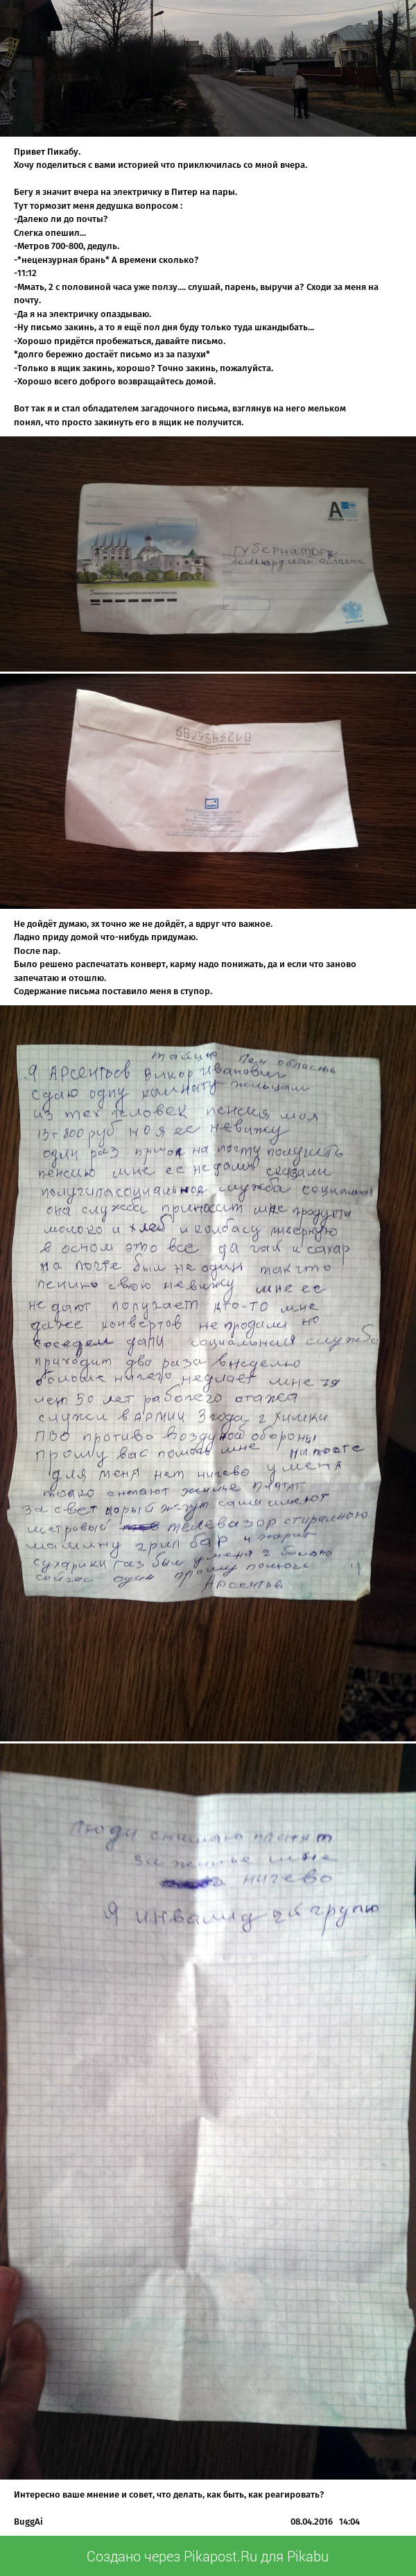 Привет Пикабу.
Хочу поделиться с вами историей что приключилась со мной вчера.
Бегу я значит вчера на электричку в Питер на пары.
Тут тормозит меня дедушка вопросом :
-Далеко ли до почты?
Слегка опешил...
-Метров 700-800, дедуль.
-*нецензурная брань* А времени сколько?
-11:12
-Ммать, 2 с половиной часа уже ползу.... слушай, парень, выручи а? Сходи за меня на
почту.
-Да я на электричку опаздываю.
-Ну письмо закинь, а то я ещё пол дня буду только туда шкандыбать...
-Хорошо придётся пробежаться, давайте письмо.
*долго бережно достаёт письмо из за пазухи*
-Только в ящик закинь, хорошо? Точно закинь, пожалуйста.
-Хорошо всего доброго возвращайтесь домой.
Вот так я и стал обладателем загадочного письма, взглянув на него мельком
понял, что просто закинуть его в ящик не получится.
А
РОССИЯ
Губернатору
Ленинградской области
0123456789
Не дойдёт думаю, эх точно же не дойдёт, а вдруг что важное.
Ладно приду домой что-нибудь придумаю.
После пар.
Было решено распечатать конверт, карму надо понижать, да и если что заново
запечатаю и отошлю.
Содержание письма поставило меня в ступор.
тайцы Лен область
Я Арсентьев Виктор Иванович
сдаю одну комнату жильцам
из тех человек пенсия моя
13т 800 руб но я ее невижу
один раз пришол на почту получить
пенсию мне ее недали сказали
получила социальная служба социальная
она служба приносит мне продукты
молоко и хлеб и колбасу ливерную
в основ это все да чай и сахар
на почте был не один так что
пенсию свою невижу мне ее
не дают получает кто-то мне
даже конвертов не продали но
соседем дали социальная служба
приходит два раза внеделю
больше ничего неделает мне 79
лет 50 лет рабочего стажа
служил в АРМИИ 3 года г Химки
ПВО противо Воздушной обороны
Прошу вас помощь мне на почте
для меня нет ничево у меня
только снимают жилье платят
За свет корый жгут сами имеют
метровый телевазор стиральною
машину грил бар и жарят
сухарики газ был у меня 2 балона
сейчас один прошу помощь
Арсентьев
Люди снимаю платят
за жилье мне
ничево
Я инвалид 2й групю
Интересно ваше мнение и совет, что делать, как быть, как реагировать?
BuggAi 08.04.2016 14:04
Создано через Pikapost.Ru для Pikabu